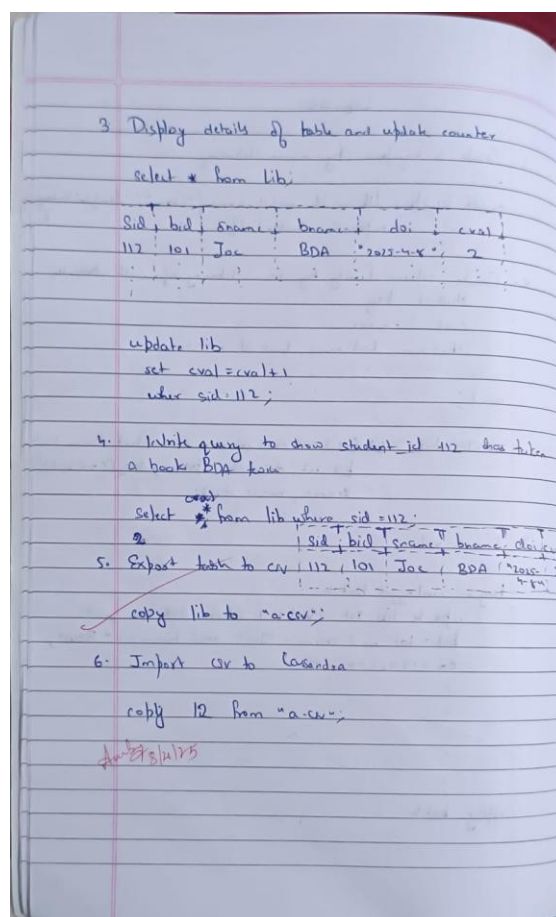 3 Display details of table and update counter
select * from lib;
sid bid sname bname doi cval
112 101 Joe BDA "2025-4-8" 2
update lib
set cval = cval + 1
wher sid = 112;
4. Write query to show student_id 112 has taken
a book BDA from
cval
select * from lib where sid = 112;
2
sid bid sname bname doi c
5. Export table to csv 112 101 Joe BDA "2025-
4-8"
copy lib to "a.csv";
6. Import csv to Casandra
copy l2 from "a.csv";
8/4/25